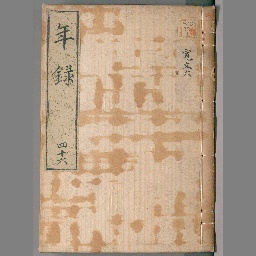 年録
四十六
寛文六